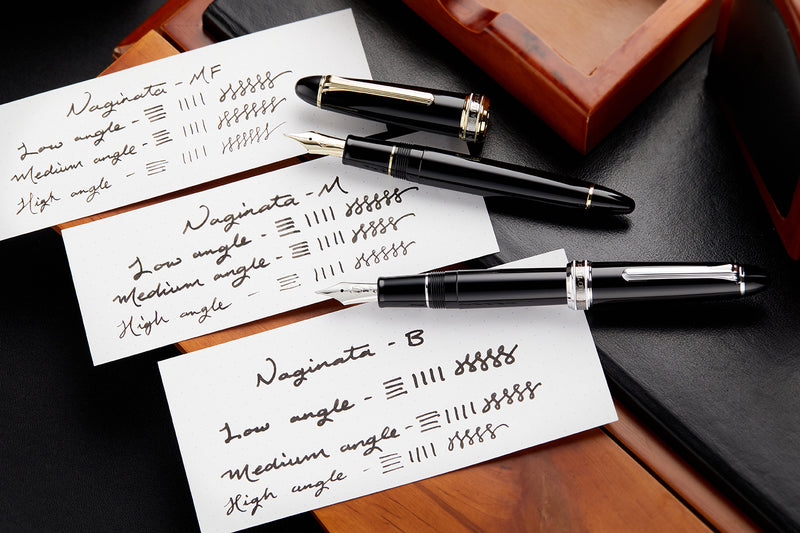 Naginata - MF
Low angle -
Medium angle -
High angle -
Naginata - M
Low angle -
Medium angle -
High angle -
Naginata - B
Low angle -
Medium angle -
High angle -